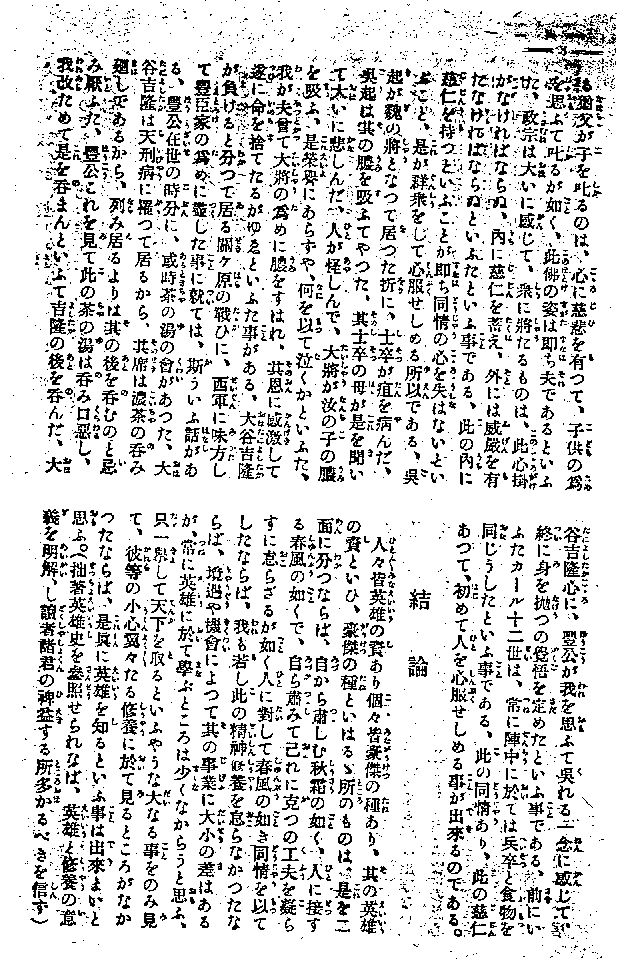 る嚴父が子を叱るのは、心に慈悲を有つて、子供の爲
を思ふて叱るが如く、此佛の姿は即ち夫であるといふ
た、政宗は大いに感じて、衆に將たるものは、此心掛
がなければならぬ、內に慈仁を蓄え、外には威嚴を有
たなければならぬといふたといふ事である、此の內に
慈仁を持つといふことが即ち同情の心を失はないとい
ふこと、是が群衆をして心服せしめる所以である、吳
起が魏の將となつて居つた折に、士卒が疽を病んだ、
吳起は其の膿を吸ふてやつた、其士卒の母が是を聞い
て大いに悲しんだ、人が怪しんで、大將が汝の子の膿
を吸ふ、是榮譽にあらずや、何を以て泣くかといふた、
我が夫曾て大將の爲めに膿をすはれ、其恩に感激して
遂に命を捨てたるがゆゑといふた事がある、大谷吉隆
が負けると分つて居る關ケ原の戰ひに、西軍に味方し
て豐臣家の爲めに盡した事に就ては、斯ういふ話があ
る、豐公在世の時分に、或時茶の湯の會があつた、大
谷吉隆は天刑病に罹つて居るから、其席は濃茶の呑み
廻しであるから、列み居るよりは其の後を呑むのを忌
み厭ふた、豐公これを見て此の茶の湯は呑み口惡し、
我改ためて是を呑まんといふて吉隆の後を呑んだ、大
谷吉隆心に、豐公が我を思ふて吳れる一念に感じて、
終に身を抛つの覺悟を定めたといふ事である、前にい
ふたカール十二世は、常に陣中に於ては兵卒と食物を
同じうしたといふ事である、此の同情あり、此の慈仁
あつて、初めて人を心服せしめる事が出來るのである。
結論
人々皆英雄の資あり個々皆豪傑の種あり、其の英雄
の資といひ、豪傑の種といはるゝ所のものは、是を二
面に分つならば、自から肅しむ秋霜の如く、人に接す
る春風の如くで、自ら肅みて己れに克つの工夫を凝ら
すに怠らざるが如く人に對して春風の如き同情を以て
したならば、我も若し此の精神修養を怠らなかつたな
らば、境遇や機會によつて其の事業に大小の差はある
が、常に英雄に於て學ぶところは少くなからうと思ふ、
只一擧して天下を取るといふやうな大なる事をのみ見
て、彼等の小心翼々たる修養に於て見るところがなか
つたならば、是眞に英雄を知るといふ事は出來まいと
思ふ(拙著英雄史を參照せられなば、英雄と修養の意
義を明解し讀者諸君の裨益する所多かるべきを信す)